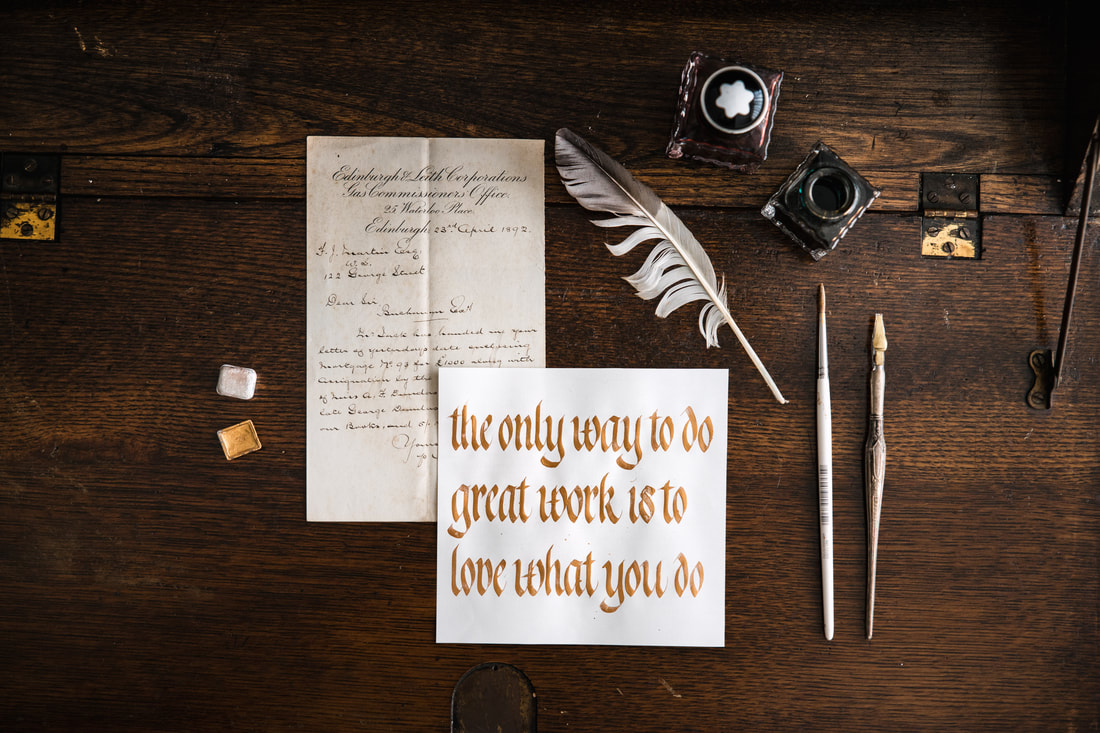 Edinburgh & Leith Corporations
Gas Commissioners Office.
25 Waterloo Place.
Edinburgh, 23rd April 1892.
F. J. Martin Esq
W.S.
122 George Street
Dear Sir,
Buchanan
has handed me your
letter of yesterday's date enclosing
Mortgage No. 93 for £1000 along with
assignation by the
of Miss A. F.
late George
our Books, and
Yours
the only way to do
great work is to
love what you do